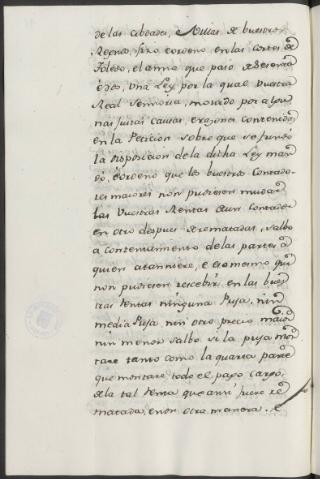 de las cibdades, e Villas de buestros
Regnos, fizo e ordenó, en las cortes de
Toledo, el anno que pasó de sesenta
é dos, Una Ley, por la qual Vuestra
Real Sennoria, movido por algu-
nas justas causas, e razones contenidas
en la Peticion sobre que se fundó
la disposicion de la dicha Ley man-
dó, é ordenó que los buestros Contado-
res maiores non pudiesen mudar
las Vuestras Rentas de un Contador
en otro despues de rematadas, salbo
a consentimiento de las partes á
quien atanniere, e eso mismo que
non pudiesen recebir en las bues-
tras Rentas ninguna Puja, nin
media Puja nin otro precio maior
nin menor salbo si la puja mon-
tare tanto como la quarta parte
que montare todo el prezo, cargo,
de la tal Renta que ansi fuere re-
matada, e non otra manera. E